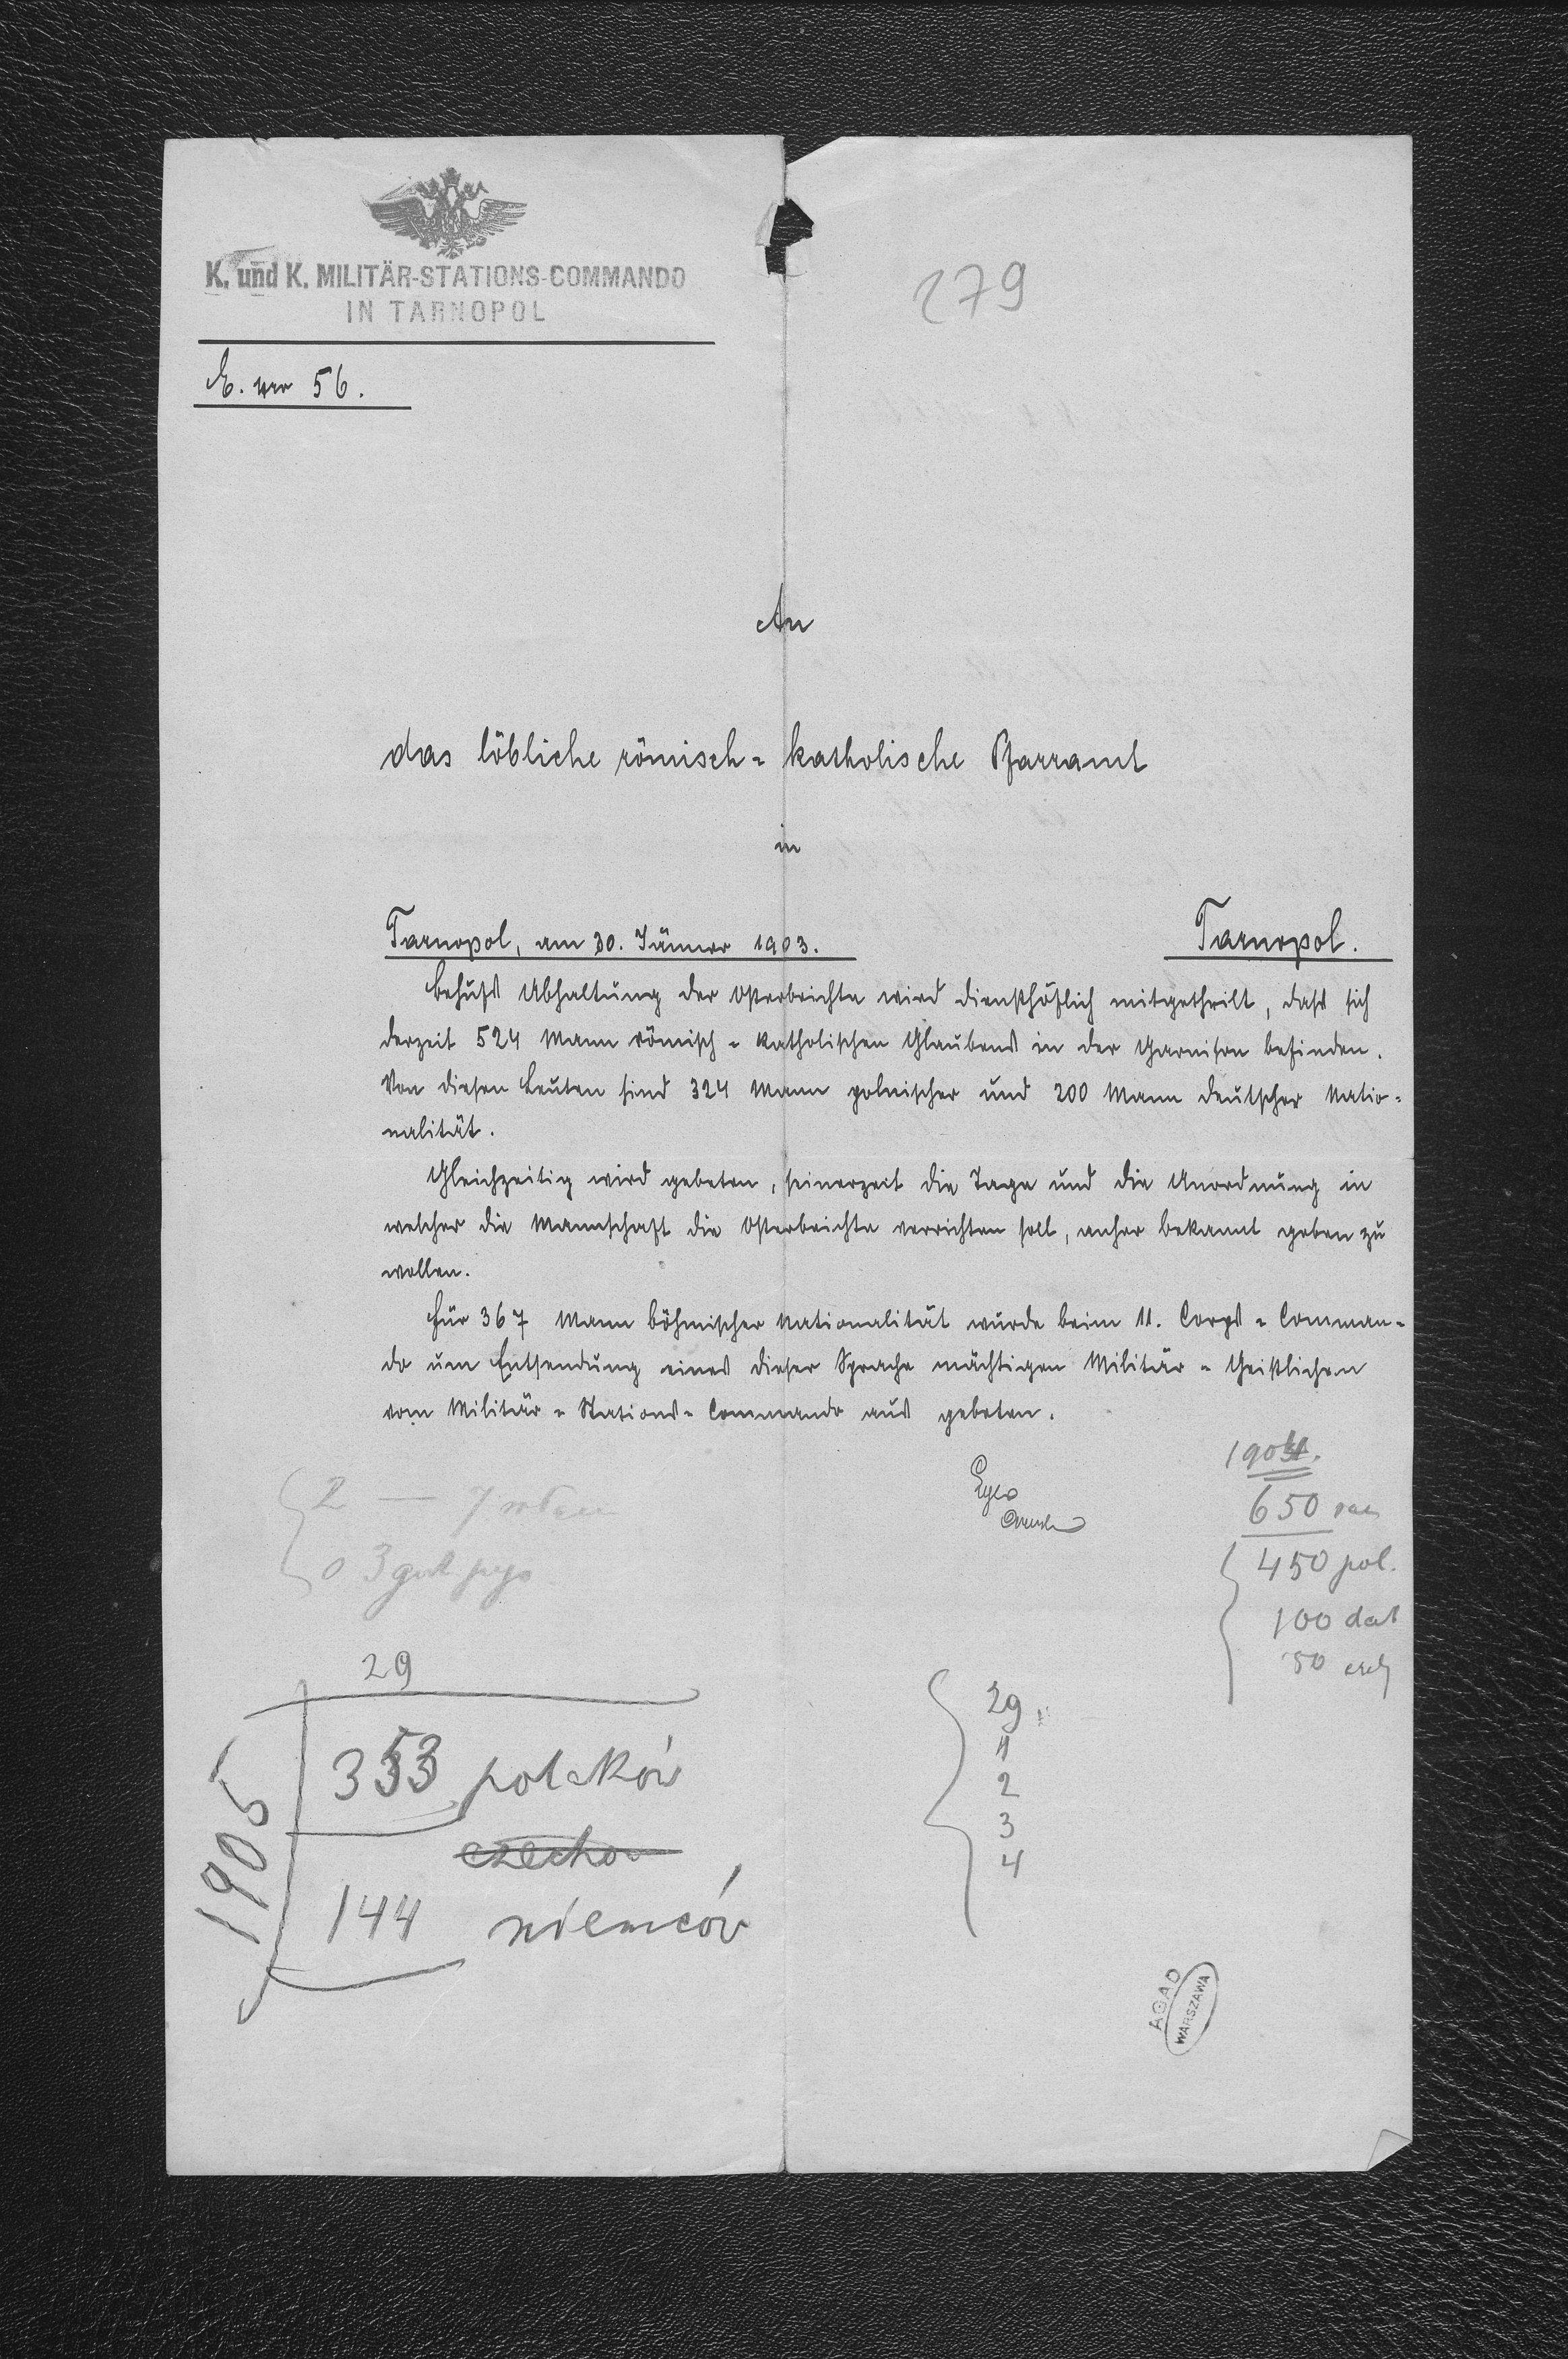 K. und K. MILITÄR-STATIONS-COMMANDO
IN TARNOPOL
E. No 56.
279
An
das löbliche römisch-katholische Pfarramt
in
Tarnopol, am 30. Jänner 1903.
Tarnopol.
Behufs Abhaltung der Osterbeichte wird diensthöflich mitgetheilt, dass sich
derzeit 524 Mann römisch-katholischen Glaubens in der Garnison befinden.
Von diesen Leuten sind 324 Mann polnischer und 200 Mann deutscher Natio-
nalität.
Gleichzeitig wird gebeten, seinerzeit die Tage und die Anordnung in
welcher die Mannschaft die Osterbeichte verrichten soll, anher bekannt geben zu
wollen.
Für 367 Mann böhmischer Nationalität wurde beim 11. Corps-Comman-
do um Entsendung eines dieser Sprache mächtigen Militär-Geistlichen
vom Militär-Stations-Commando aus gebeten.
2 — 7
0 3
1904.
650
450 pol.
100
50
29
1905
353 polaków
czechow
144 niemców
29
11
2
3
4
AGAD
WARSZAWA